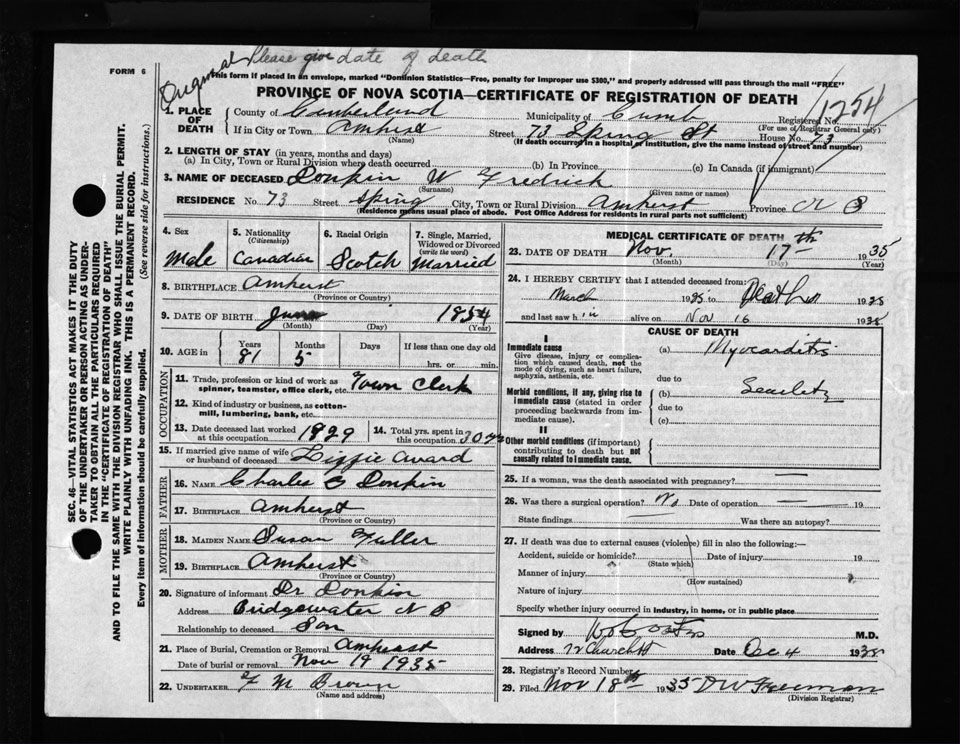 Original Please give date of death
FORM 6
This form if placed in an envelope, marked "Dominion Statistics—Free, penalty for improper use $300," and properly addressed will pass through the mail "FREE"
PROVINCE OF NOVA SCOTIA—CERTIFICATE OF REGISTRATION OF DEATH
1254
1. PLACE OF DEATH County of Cumberland Municipality of Cumb Registered No.
(For use of Registrar General only)
If in City or Town Amherst Street 73 Spring St House No. 73
(Name) (If death occurred in a hospital or institution, give the name instead of street and number)
2. LENGTH OF STAY (in years, months and days)
(a) In City, Town or Rural Division where death occurred (b) In Province (c) In Canada (if immigrant)
3. NAME OF DECEASED Donkin W Fredrick
(Surname) (Given name or names)
RESIDENCE No. 73 Street Spring City, Town or Rural Division Amherst Province N S
(Residence means usual place of abode. Post Office Address for residents in rural parts not sufficient)
4. Sex 5. Nationality (Citizenship) 6. Racial Origin 7. Single, Married, Widowed or Divorced (write the word)
Male Canadian Scotch Married
8. BIRTHPLACE Amherst
(Province or Country)
9. DATE OF BIRTH June 1854
(Month) (Day) (Year)
10. AGE in Years Months Days If less than one day old
81 5 hrs. or min.
OCCUPATION
11. Trade, profession or kind of work as spinner, teamster, office clerk, etc. Town Clerk
12. Kind of industry or business, as cotton-mill, lumbering, bank, etc.
13. Date deceased last worked at this occupation 1929 14. Total yrs. spent in this occupation 30
15. If married give name of wife or husband of deceased Lizzie
FATHER
16. NAME Charles E Donkin
17. BIRTHPLACE Amherst
(Province or Country)
MOTHER
18. MAIDEN NAME Susan Fuller
19. BIRTHPLACE Amherst
(Province or Country)
20. Signature of informant Dr Donkin
Address Bridgewater N S
Relationship to deceased Son
21. Place of Burial, Cremation or Removal Amherst
Date of burial or removal Nov 19 1935
22. UNDERTAKER F M Brown
(Name and address)
MEDICAL CERTIFICATE OF DEATH
23. DATE OF DEATH Nov. 17th 1935
(Month) (Day) (Year)
24. I HEREBY CERTIFY that I attended deceased from:
March 1935 to Death 1935
and last saw him alive on Nov 16 1935
CAUSE OF DEATH
I
Immediate cause (a) Myocarditis
Give disease, injury or complication which caused death, not the mode of dying, such as heart failure, asphyxia, asthenia, etc.
due to
Morbid conditions, if any, giving rise to immediate cause (stated in order proceeding backwards from immediate cause). (b) Senility
due to
(c)
II
Other morbid conditions (if important) contributing to death but not causally related to immediate cause.
25. If a woman, was the death associated with pregnancy?
26. Was there a surgical operation? No Date of operation — 19
State findings — Was there an autopsy?
27. If death was due to external causes (violence) fill in also the following:—
Accident, suicide or homicide? Date of injury 19
(State which)
Manner of injury
(How sustained)
Nature of injury
Specify whether injury occurred in industry, in home, or in public place
Signed by M.D.
Address 12 Church St Date Dec 4 1935
28. Registrar's Record Number
29. Filed Nov 18th 1935 D W Freeman
(Division Registrar)
SEC. 46—VITAL STATISTICS ACT MAKES IT THE DUTY
OF THE UNDERTAKER OR PERSON ACTING AS UNDER-
TAKER TO OBTAIN ALL THE PARTICULARS REQUIRED
IN THE "CERTIFICATE OF REGISTRATION OF DEATH"
AND TO FILE THE SAME WITH THE DIVISION REGISTRAR WHO SHALL ISSUE THE BURIAL PERMIT.
WRITE PLAINLY WITH UNFADING INK. THIS IS A PERMANENT RECORD.
Every item of information should be carefully supplied. (See reverse side for instructions.)